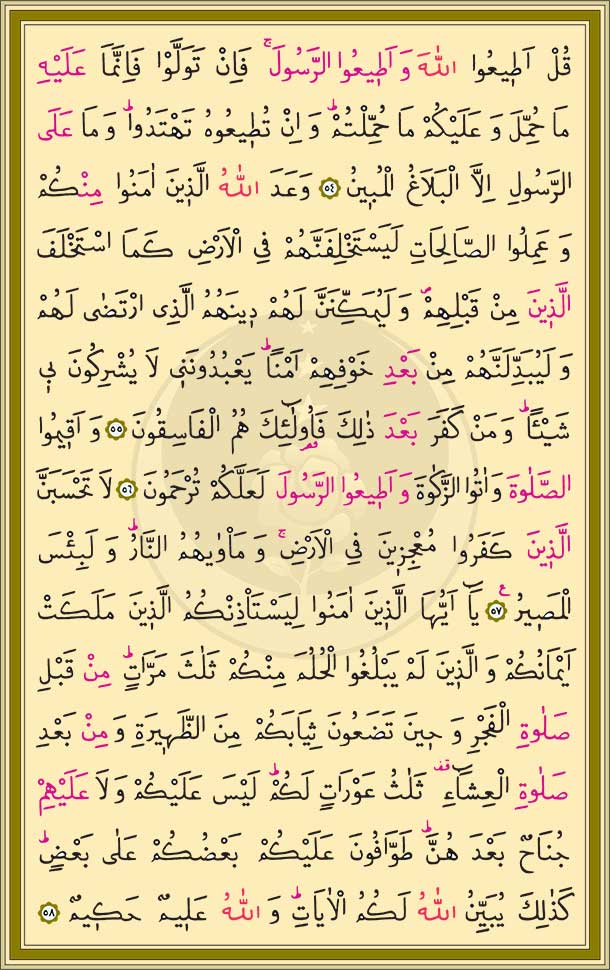 قُلْ اَط۪يعُوا اللّٰهَ وَاَط۪يعُوا الرَّسُولَۚ فَاِنْ تَوَلَّوْا فَاِنَّمَا عَلَيْهِ
مَا حُمِّلَ وَعَلَيْكُمْ مَا حُمِّلْتُمْۜ وَاِنْ تُط۪يعُوهُ تَهْتَدُواۜ وَمَا عَلَى
الرَّسُولِ اِلَّا الْبَلَاغُ الْمُب۪ينُ ﴿٥٤﴾ وَعَدَ اللّٰهُ الَّذ۪ينَ اٰمَنُوا مِنْكُمْ
وَعَمِلُوا الصَّالِحَاتِ لَيَسْتَخْلِفَنَّهُمْ فِي الْاَرْضِ كَمَا اسْتَخْلَفَ
الَّذ۪ينَ مِنْ قَبْلِهِمْۖ وَلَيُمَكِّنَنَّ لَهُمْ د۪ينَهُمُ الَّذِي ارْتَضٰى لَهُمْ
وَلَيُبَدِّلَنَّهُمْ مِنْ بَعْدِ خَوْفِهِمْ اَمْنًاۜ يَعْبُدُونَن۪ي لَا يُشْرِكُونَ ب۪ي
شَيْـًٔاۜ وَمَنْ كَفَرَ بَعْدَ ذٰلِكَ فَاُو۬لٰٓئِكَ هُمُ الْفَاسِقُونَ ﴿٥٥﴾ وَاَق۪يمُوا
الصَّلٰوةَ وَاٰتُوا الزَّكٰوةَ وَاَط۪يعُوا الرَّسُولَ لَعَلَّكُمْ تُرْحَمُونَ ﴿٥٦﴾ لَا تَحْسَبَنَّ
الَّذ۪ينَ كَفَرُوا مُعْجِز۪ينَ فِي الْاَرْضِۚ وَمَأْوٰيهُمُ النَّارُۜ وَلَبِئْسَ
الْمَص۪يرُ۟ ﴿٥٧﴾ يَٓا اَيُّهَا الَّذ۪ينَ اٰمَنُوا لِيَسْتَأْذِنْكُمُ الَّذ۪ينَ مَلَكَتْ
اَيْمَانُكُمْ وَالَّذ۪ينَ لَمْ يَبْلُغُوا الْحُلُمَ مِنْكُمْ ثَلٰثَ مَرَّاتٍۜ مِنْ قَبْلِ
صَلٰوةِ الْفَجْرِ وَح۪ينَ تَضَعُونَ ثِيَابَكُمْ مِنَ الظَّه۪يرَةِ وَمِنْ بَعْدِ
صَلٰوةِ الْعِشَٓاءِ۠ ثَلٰثُ عَوْرَاتٍ لَكُمْۜ لَيْسَ عَلَيْكُمْ وَلَا عَلَيْهِمْ
جُنَاحٌ بَعْدَهُنَّۜ طَوَّافُونَ عَلَيْكُمْ بَعْضُكُمْ عَلٰى بَعْضٍۜ
كَذٰلِكَ يُبَيِّنُ اللّٰهُ لَكُمُ الْاٰيَاتِۜ وَاللّٰهُ عَل۪يمٌ حَك۪يمٌ ﴿٥٨﴾